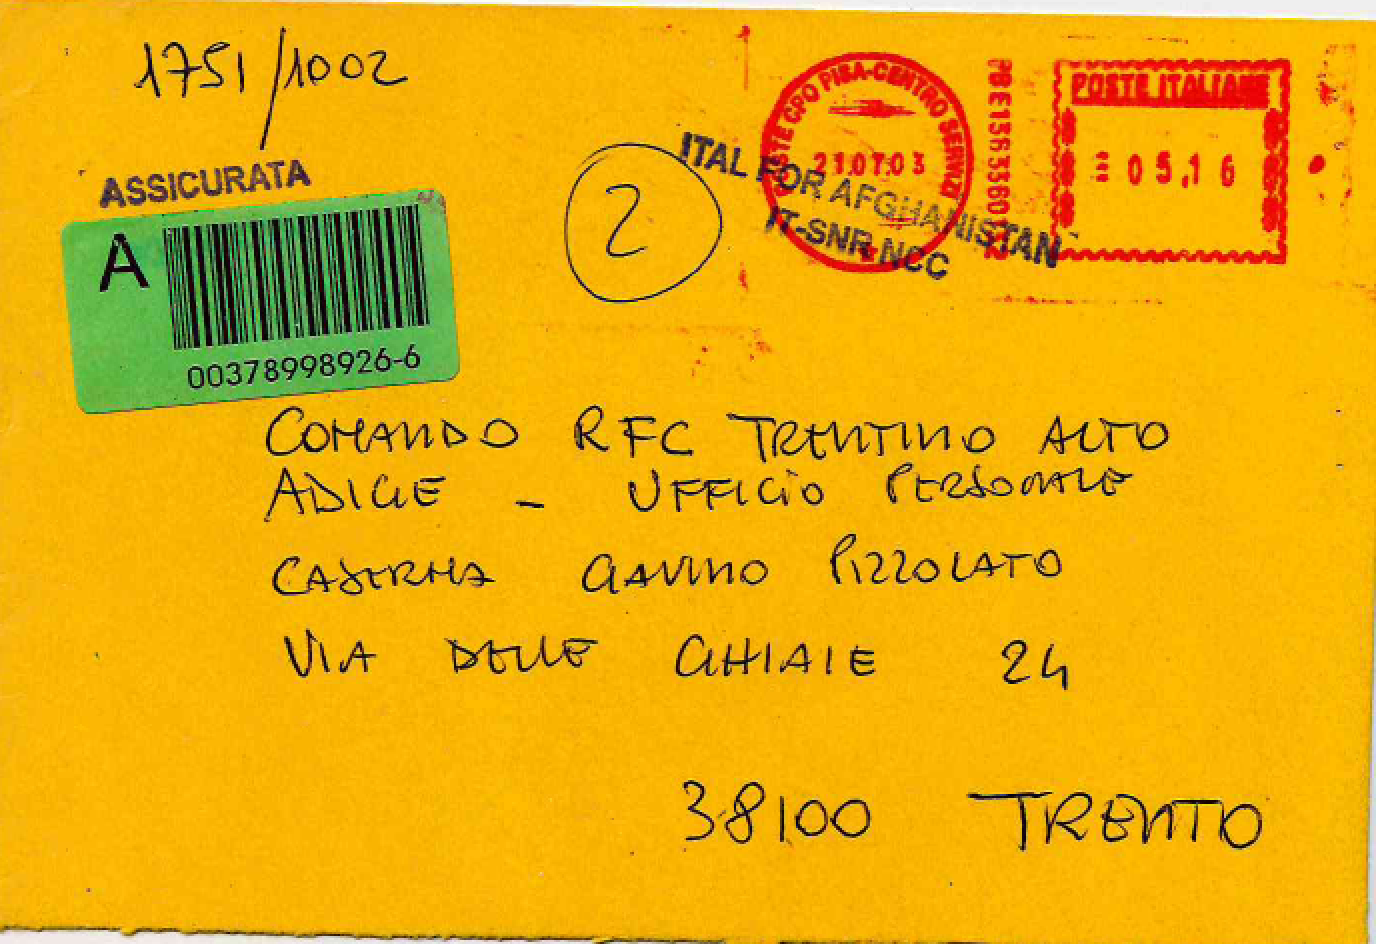 1751/1002
ASSICURATA
A
00378998926-6
2
ITAL FOR AFGHANISTAN
IT-SNR-NCC
POSTE CPO PISA-CENTRO SERVIZI
210703
POSTE ITALIANE
05,16
COMANDO RFC TRENTINO ALTO
ADIGE - UFFICIO PERSONALE
CASERMA GAVINO PIZZOLATO
VIA DELLE GHIAIE 24
38100 TRENTO